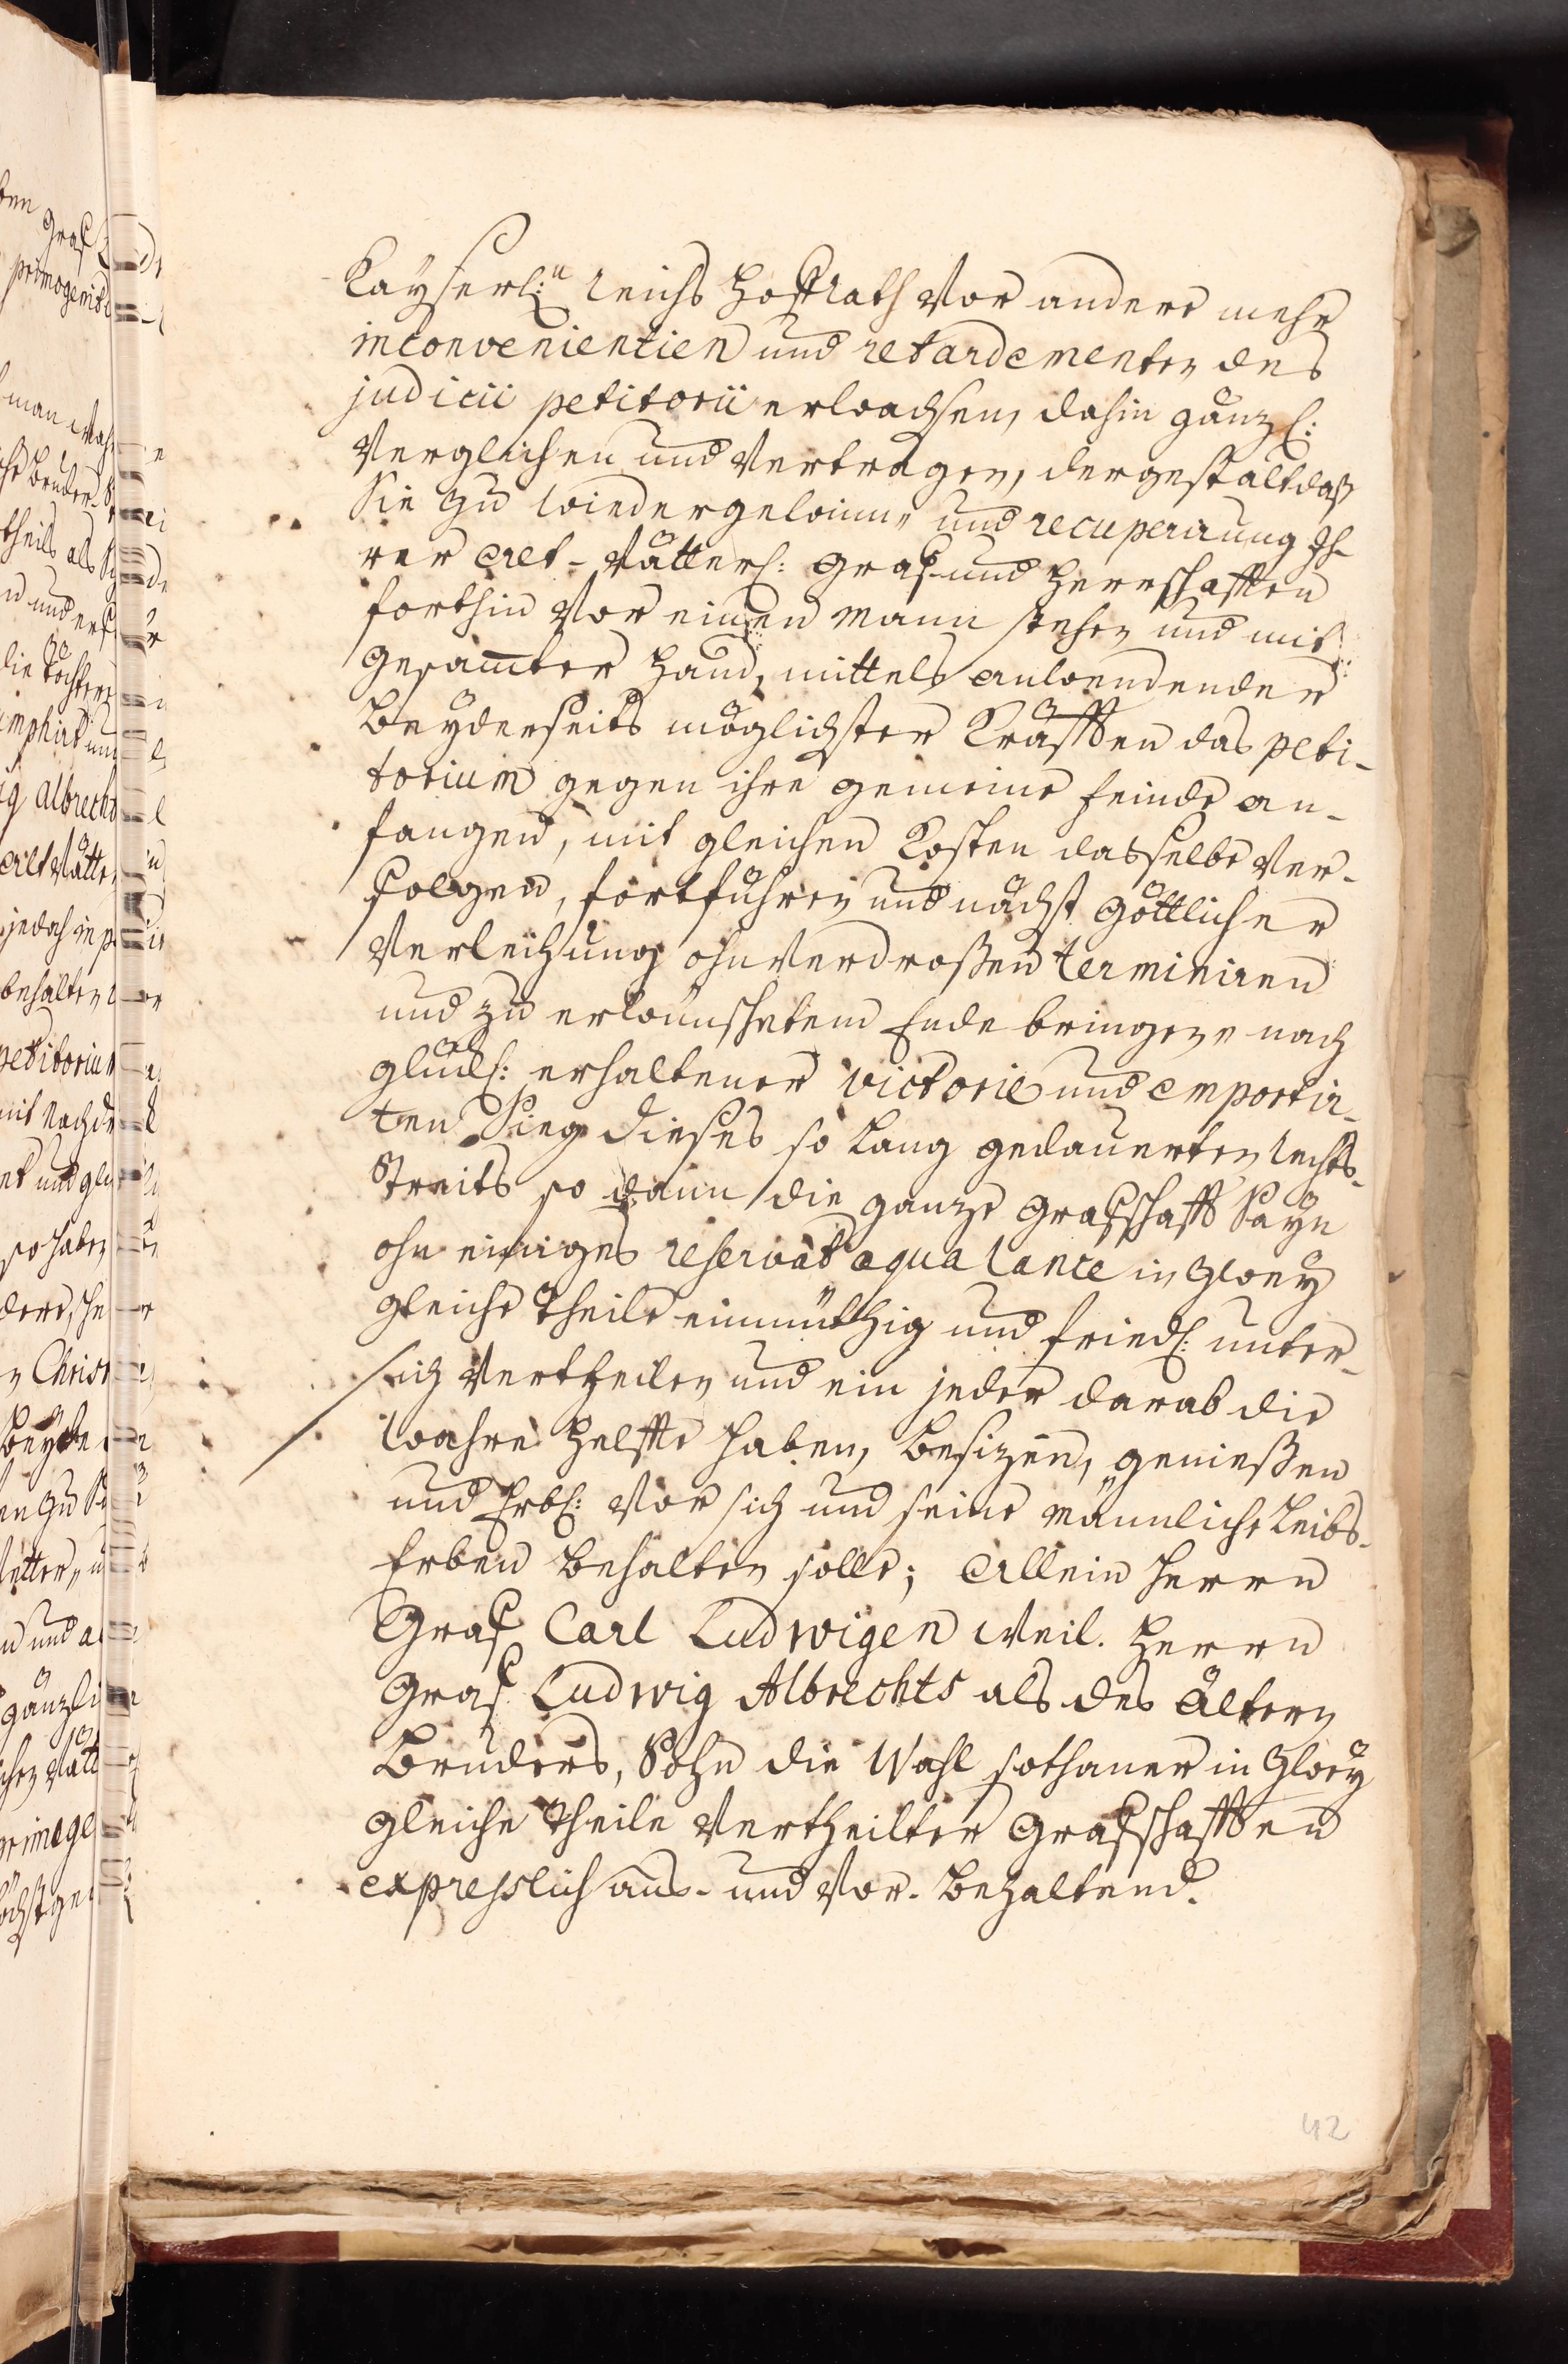 Kayserl:n Reichs Hoff Rath vor andere mehr
inconvenientien und retardementen des
judicii petitorii erwachsen, dahin gänzl:
verglichen und vertragen, dergestalt daß
Sie zu wiedergewinn- und recuperirung Ih-
rer Alt-Vätterl: Graf- und Herrschafften
forthin vor einen Mann stehen und mit
gesamter Hand, mittels anwendender
beyderseits möglichster Kräfften das peti-
torium gegen ihre gemeine Feinde an-
fangen, mit gleichen Kosten dasselbe ver-
folgen, fortführen und nächst göttlicher
Verleihung ohnverdroßen terminiren
und zu erwünschetem Ende bringen, nach
glückl: erhaltener victorie und emportir-
ten Sieg dieses so lang gedauerten Rechts-
Streits so dann die ganze Grafschafft Sayn
ohn einiges reservat aqua lance in zwey
gleiche Theile einmüthig und friedl: unter-
sich vertheilen und ein jeder darab die
wahre Helffte haben, besizen, genießen
und Erbl: vor sich und seine Männliche Leibs-
Erben behalten solle; Allein Herrn
Graf Carl Ludwigen weil. Herrn
Graf Ludwig Albrechts als des ältern
Bruders, Sohn die Wahl sothaner in zwey
gleiche Theile vertheilter Grafschafften
expresslich aus- und vor-behaltend.
42
ben
Graf
primogenit
man
Bruder
theils als
n und
die Töchter
und
Albrecht
Alt Vätt
jedoch in
behalten
petitoriu
mit Nachd
et und
so haben
n Christ
Beyde
en zu
Vetter, u
n und a
gänzli